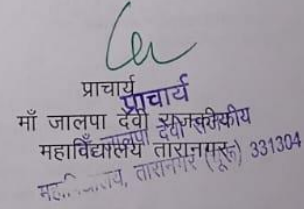 प्राचार्य
प्राचार्य
माँ जालपा देवी राजकीय
महाविद्यालय तारानगर
जालपा देवी राजकीय
महाविद्यालय, तारानगर (चूरू) 331304